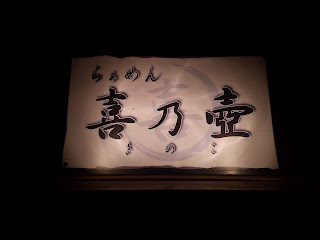 らぁめん
喜乃壺
きのこ